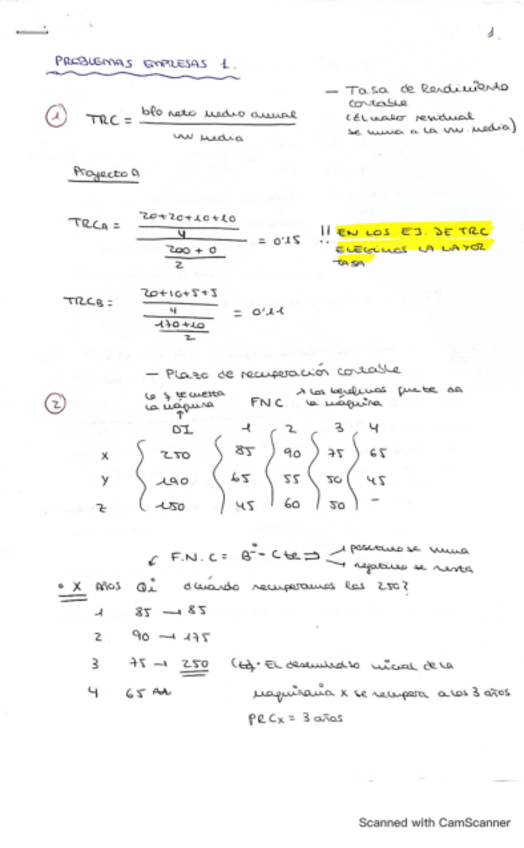 1.
PROBLEMAS EMPRESAS 1.
— Tasa de Rendimiento
contable
(El valor residual
se suma a la inv. media)
① TRC = bfo neto medio anual
inv media
Proyecto A
TRCA = 20+20+10+10
4
200 + 0
2
= 0'15
!! EN LOS EJ. DE TRC
ELEGIMOS LA MAYOR
TASA
TRCB =
20+10+5+5
4
170+10
2
= 0'11
— Plazo de recuperación contable
②
la máquina
FNC
la máquina
DI 1 2 3 4
X 250 85 90 75 65
Y 190 65 55 50 45
Z 150 45 60 50 -
F.N.C = Bº - Cte ⇒ positivo se suma
negativo se resta
• X Años Qi ¿cuándo recuperamos los 250?
1 85 → 85
2 90 → 175
3 75 → 250 El desembolso inicial de la
4 65 maquinaria X se recupera a los 3 años
PRCx = 3 años
Scanned with CamScanner